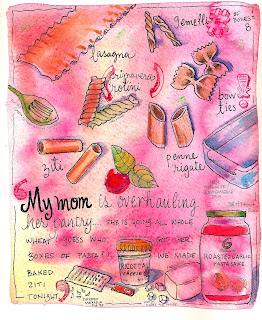 gemelli
# OF BOXES=
8
lasagna
primavera
rotini
bow
ties!
ziti
penne
rigate
My mom is overhauling
her pantry... SHE IS GOING ALL WHOLE
WHEAT. GUESS WHO GOT HER
BOXES OF PASTA? WE MADE
BAKED
ZITI
TONIGHT.
RICOTTA
CHEESE
6
ROASTED GARLIC
PASTA SAUCE